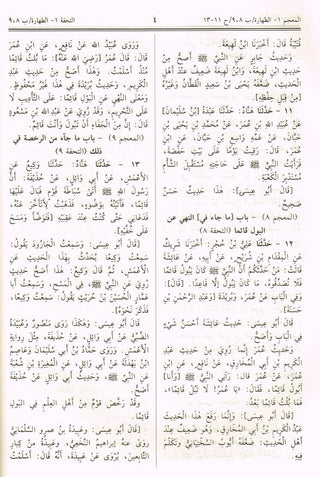 المعجم ١- الطهارة/ب ٩،٨/ح ١١-١٣
٤
التحفة ١- الطهارة/ب ٩،٨
قُتَيْبَةُ قَالَ: أَخْبَرَنَا ابْنُ لَهِيعَةَ.
وَحَدِيثُ جَابِرٍ عَنِ النَّبِيِّ ﷺ أَصَحُّ مِنْ
حَدِيثِ ابْنِ لَهِيعَةَ، وَابْنُ لَهِيعَةَ ضَعِيفٌ عِنْدَ أَهْلِ
الْحَدِيثِ، ضَعَّفَهُ يَحْيَى بْنُ سَعِيدٍ الْقَطَّانُ وَغَيْرُهُ
[مِنْ قِبَلِ حِفْظِهِ].
١١ - حَدَّثَنَا هَنَّادٌ: حَدَّثَنَا عَبْدَةُ [بْنُ سُلَيْمَانَ]
عَنْ عُبَيْدِ اللهِ بْنِ عُمَرَ، عَنْ مُحَمَّدِ بْنِ يَحْيَى بْنِ
حَبَّانَ، عَنْ عَمِّهِ وَاسِعِ بْنِ حَبَّانَ، عَنِ ابْنِ
عُمَرَ، قَالَ: رَقِيتُ يَوْمًا عَلَى بَيْتِ حَفْصَةَ،
فَرَأَيْتُ النَّبِيَّ ﷺ عَلَى حَاجَتِهِ مُسْتَقْبِلَ الشَّأْمِ
مُسْتَدْبِرَ الْكَعْبَةِ.
[قَالَ أَبُو عِيسَى]: هَذَا حَدِيثٌ حَسَنٌ
صَحِيحٌ.
(المعجم ٨) - باب [ما جاء في] النهي عن
البول قائما (التحفة ٨)
١٢ - حَدَّثَنَا عَلِيُّ بْنُ حُجْرٍ: أَخْبَرَنَا شَرِيكٌ
عَنِ الْمِقْدَامِ بْنِ شُرَيْحٍ، عَنْ أَبِيهِ، عَنْ عَائِشَةَ
قَالَتْ: مَنْ حَدَّثَكُمْ أَنَّ النَّبِيَّ ﷺ كَانَ يَبُولُ قَائِمًا
فَلَا تُصَدِّقُوهُ، مَا كَانَ يَبُولُ إِلَّا قَاعِدًا. [قَالَ]:
وَفِي الْبَابِ عَنْ عُمَرَ، وَبُرَيْدَةَ [وَعَبْدِ الرَّحْمَنِ بْنِ
حَسَنَةَ].
قَالَ أَبُو عِيسَى: حَدِيثُ عَائِشَةَ أَحْسَنُ شَيْءٍ
فِي الْبَابِ وَأَصَحُّ.
وَحَدِيثُ عُمَرَ إِنَّمَا رُوِيَ مِنْ حَدِيثِ عَبْدِ
الْكَرِيمِ بْنِ أَبِي الْمُخَارِقِ، عَنْ نَافِعٍ، عَنِ ابْنِ
عُمَرَ، عَنْ عُمَرَ، قَالَ: رَآنِي النَّبِيُّ ﷺ [وَأَنَا]
أَبُولُ قَائِمًا، فَقَالَ: «يَا عُمَرُ! لَا تَبُلْ قَائِمًا»
فَمَا بُلْتُ قَائِمًا بَعْدُ.
[قَالَ أَبُو عِيسَى]: وَإِنَّمَا رَفَعَ هَذَا الْحَدِيثَ
عَبْدُ الْكَرِيمِ بْنُ أَبِي الْمُخَارِقِ، وَهُوَ ضَعِيفٌ عِنْدَ
أَهْلِ الْحَدِيثِ: ضَعَّفَهُ أَيُّوبُ السَّخْتِيَانِيُّ وَتَكَلَّمَ
فِيهِ.
وَرَوَى عُبَيْدُ اللهِ عَنْ نَافِعٍ، عَنِ ابْنِ عُمَرَ
قَالَ: قَالَ عُمَرُ [رَضِيَ اللهُ عَنْهُ]: مَا بُلْتُ قَائِمًا
مُنْذُ أَسْلَمْتُ. وَهَذَا أَصَحُّ مِنْ حَدِيثِ عَبْدِ
الْكَرِيمِ، وَحَدِيثُ بُرَيْدَةَ فِي هَذَا غَيْرُ مَحْفُوظٍ.
وَمَعْنَى النَّهْيِ عَنِ الْبَوْلِ قَائِمًا: عَلَى التَّأْدِيبِ لَا
عَلَى التَّحْرِيمِ. وَقَدْ رُوِيَ عَنْ عَبْدِ اللهِ بْنِ مَسْعُودٍ
قَالَ: إِنَّ مِنَ الْجَفَاءِ أَنْ تَبُولَ وَأَنْتَ قَائِمٌ.
(المعجم ٩) - باب ما جاء من الرخصة في
ذلك (التحفة ٩)
١٣ - حَدَّثَنَا هَنَّادٌ: حَدَّثَنَا وَكِيعٌ عَنِ
الْأَعْمَشِ، عَنْ أَبِي وَائِلٍ، عَنْ حُذَيْفَةَ: أَنَّ
رَسُولَ اللهِ ﷺ أَتَى سُبَاطَةَ قَوْمٍ فَبَالَ عَلَيْهَا
قَائِمًا، فَأَتَيْتُهُ بِوَضُوءٍ، فَذَهَبْتُ لِأَتَأَخَّرَ عَنْهُ،
فَدَعَانِي حَتَّى كُنْتُ عِنْدَ عَقِبَيْهِ، [فَتَوَضَّأَ وَمَسَحَ
عَلَى خُفَّيْهِ].
[قَالَ أَبُو عِيسَى: وَسَمِعْتُ الْجَارُودَ يَقُولُ:
سَمِعْتُ وَكِيعًا يُحَدِّثُ بِهَذَا الْحَدِيثِ عَنِ
الْأَعْمَشِ، ثُمَّ قَالَ وَكِيعٌ: هَذَا أَصَحُّ حَدِيثٍ
رُوِيَ عَنِ النَّبِيِّ ﷺ فِي الْمَسْحِ، وَسَمِعْتُ أَبَا
عَمَّارٍ الْحُسَيْنَ بْنَ حُرَيْثٍ يَقُولُ: سَمِعْتُ وَكِيعًا،
فَذَكَرَ نَحْوَهُ].
قَالَ أَبُو عِيسَى: وَهَكَذَا رَوَى مَنْصُورٌ وَعُبَيْدَةُ
الضَّبِّيُّ عَنْ أَبِي وَائِلٍ، عَنْ حُذَيْفَةَ، مِثْلَ رِوَايَةِ
الْأَعْمَشِ. وَرَوَى حَمَّادُ بْنُ أَبِي سُلَيْمَانَ وَعَاصِمُ
ابْنُ بَهْدَلَةَ عَنْ أَبِي وَائِلٍ، عَنِ الْمُغِيرَةِ بْنِ شُعْبَةَ
عَنِ النَّبِيِّ ﷺ، وَحَدِيثُ أَبِي وَائِلٍ عَنْ حُذَيْفَةَ
أَصَحُّ.
وَقَدْ رَخَّصَ قَوْمٌ مِنْ أَهْلِ الْعِلْمِ فِي الْبَوْلِ
قَائِمًا.
[قَالَ أَبُو عِيسَى: وَعَبِيدَةُ بْنُ عَمْرٍو السَّلْمَانِيُّ
رَوَى عَنْهُ إِبْرَاهِيمُ النَّخَعِيُّ، وَعَبِيدَةُ مِنْ كِبَارِ
التَّابِعِينَ، يُرْوَى عَنْ عَبِيدَةَ، أَنَّهُ قَالَ: أَسْلَمْتُ